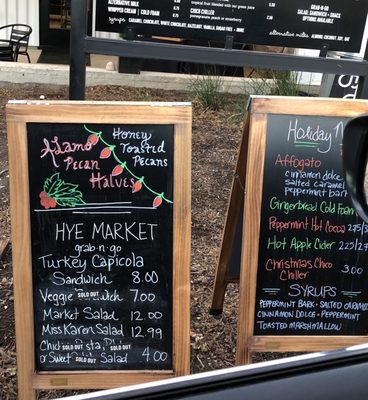 ALTERNATIVE MILK
WHIPPED CREAM
COLD FOAM
syrups
CARAMEL, CHOCOLATE, WHITE CHOCOLATE, HAZELNUT, VANILLA, SUGAR FREE
tropical fruit blended with our green juice
CHICA CHILLER
pomegranate peach or strawberry
GRAB-N-GO
SALAD, SANDWICH + SNACK
OPTIONS AVAILABLE
alternative milks
ALMOND, COCONUT, SOY
Alamo
Pecan
Halves
Honey
Toasted
Pecans
HYE MARKET
grab-n-go
Turkey Capicola
Sandwich 8.00
Veggie SOLD OUT 7.00
Market Salad 12.00
Miss Karen Salad 12.99
SOLD OUT
or Sweet SOLD OUT Salad 4.00
Holiday
Affogato
cinnamon dolce
salted caramel
Peppermint bark
Gingerbread Cold Foam
Peppermint Hot
Cocoa 2.75/3
Hot Apple Cider 2.25/2.7
Christmas Choco
Chiller 3.00
SYRUPS
PEPPERMINT BARK • SALTED CARAMEL
CINNAMON DOLCE • PEPPERMINT
TOASTED MARSHMALLOW